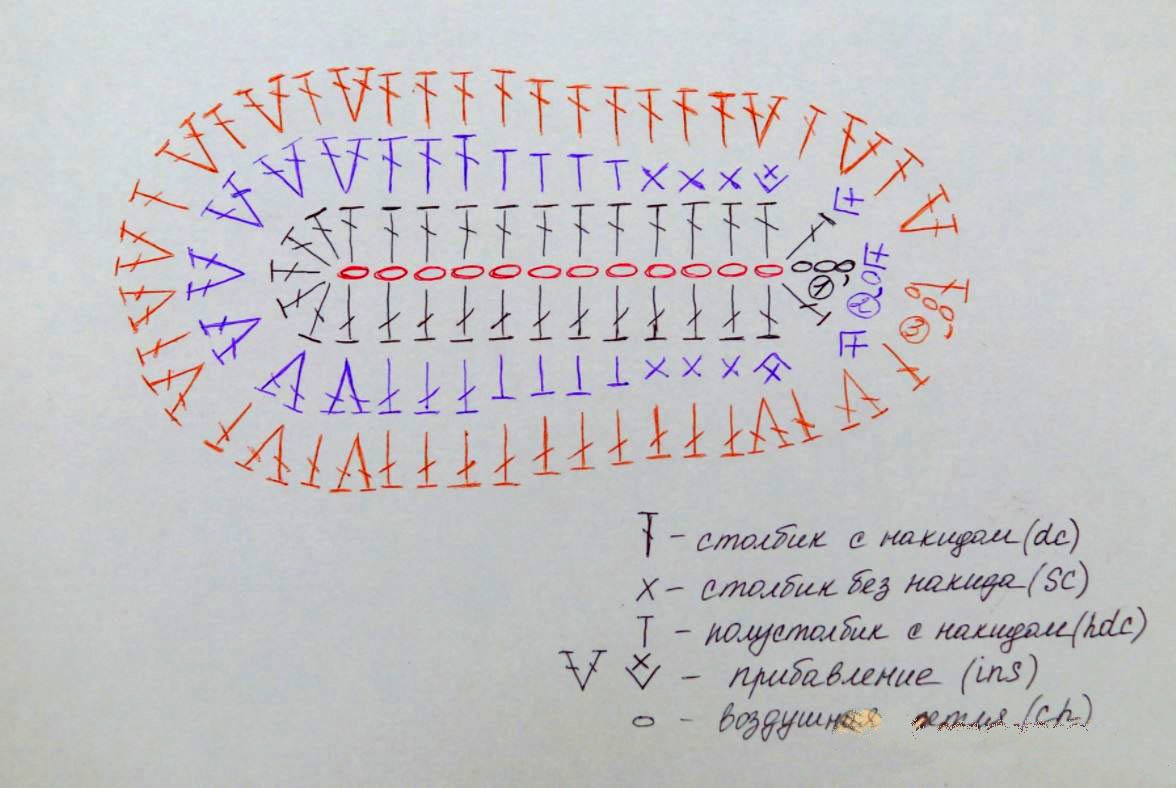 1
2
3
– столбик с накидом (dc)
x – столбик без накида (sc)
– полустолбик с накидом (hdc)
– прибавление (ins)